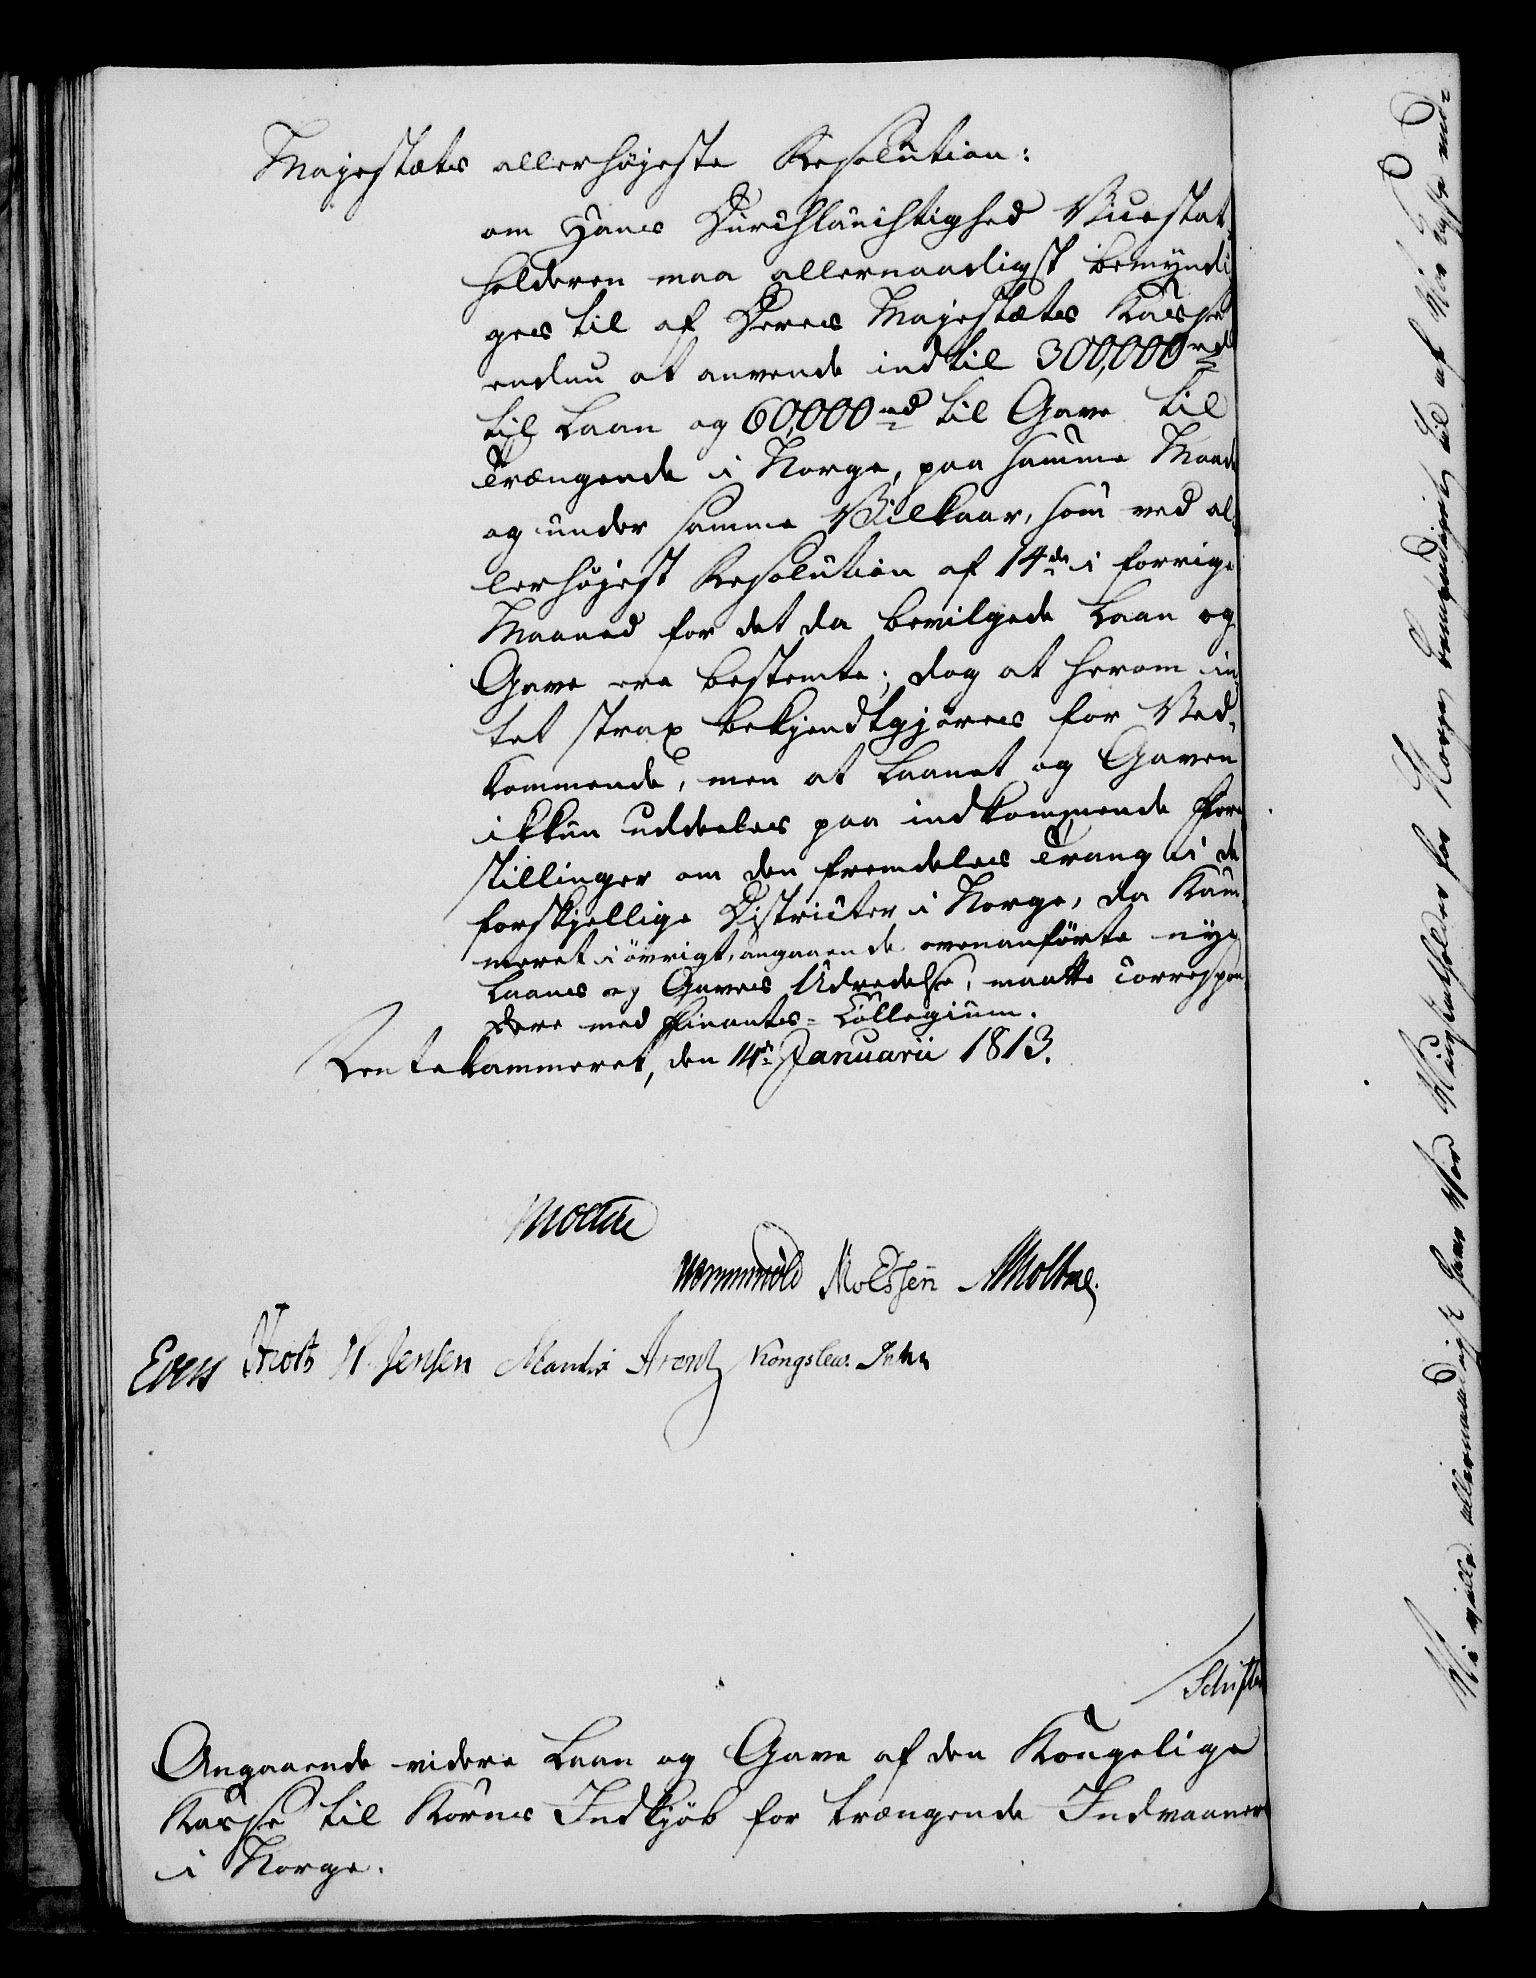 Majestæts allerhøjeste Resolution:
om Hans Durchlauchtighed Vicestat-
holderen maa allernaadigst bemyndi
ges til af Deres Majestæts Kasse
endnu at anvende indtil 300,000 rd
til Laan og 60,000 rd til Gave til
Trængende i Norge, paa samme Maade
og under samme Vilkaar, som ved al-
lerhøjest Resolution af 14de i forrige
Maaned for det da bevilgede Laan og
Gave ere bestemte; dog at herom in-
tet strax bekjendtgjøres for Ved-
kommende, men at Laanet og Gaven
ikkun uddeles paa indkommende Fore
stillinger om den fremdeles Trang i de
forskjellige Districter i Norge, da Kam-
meret i øvrigt, angaaende ovenanførte nye
Laans og Gaves Udredelse, maatte correspon
dere med Finants-Collegium.
Rentekammeret, den 14de Januarii 1813.
Moltke
Wormskiold Moessen AMoltke.
Evers Stroth H. Jensen Manthei Arentz Kongslew.
Schifter
Angaaende videre Laan og Gave af den Kongelige
Kasse til Korns Indkjøb for trængende Indvaanere
i Norge.
Vi ville allernaadigst have Vor Vicestatholder for Norge bemyndiget til af Vor Kasse end-